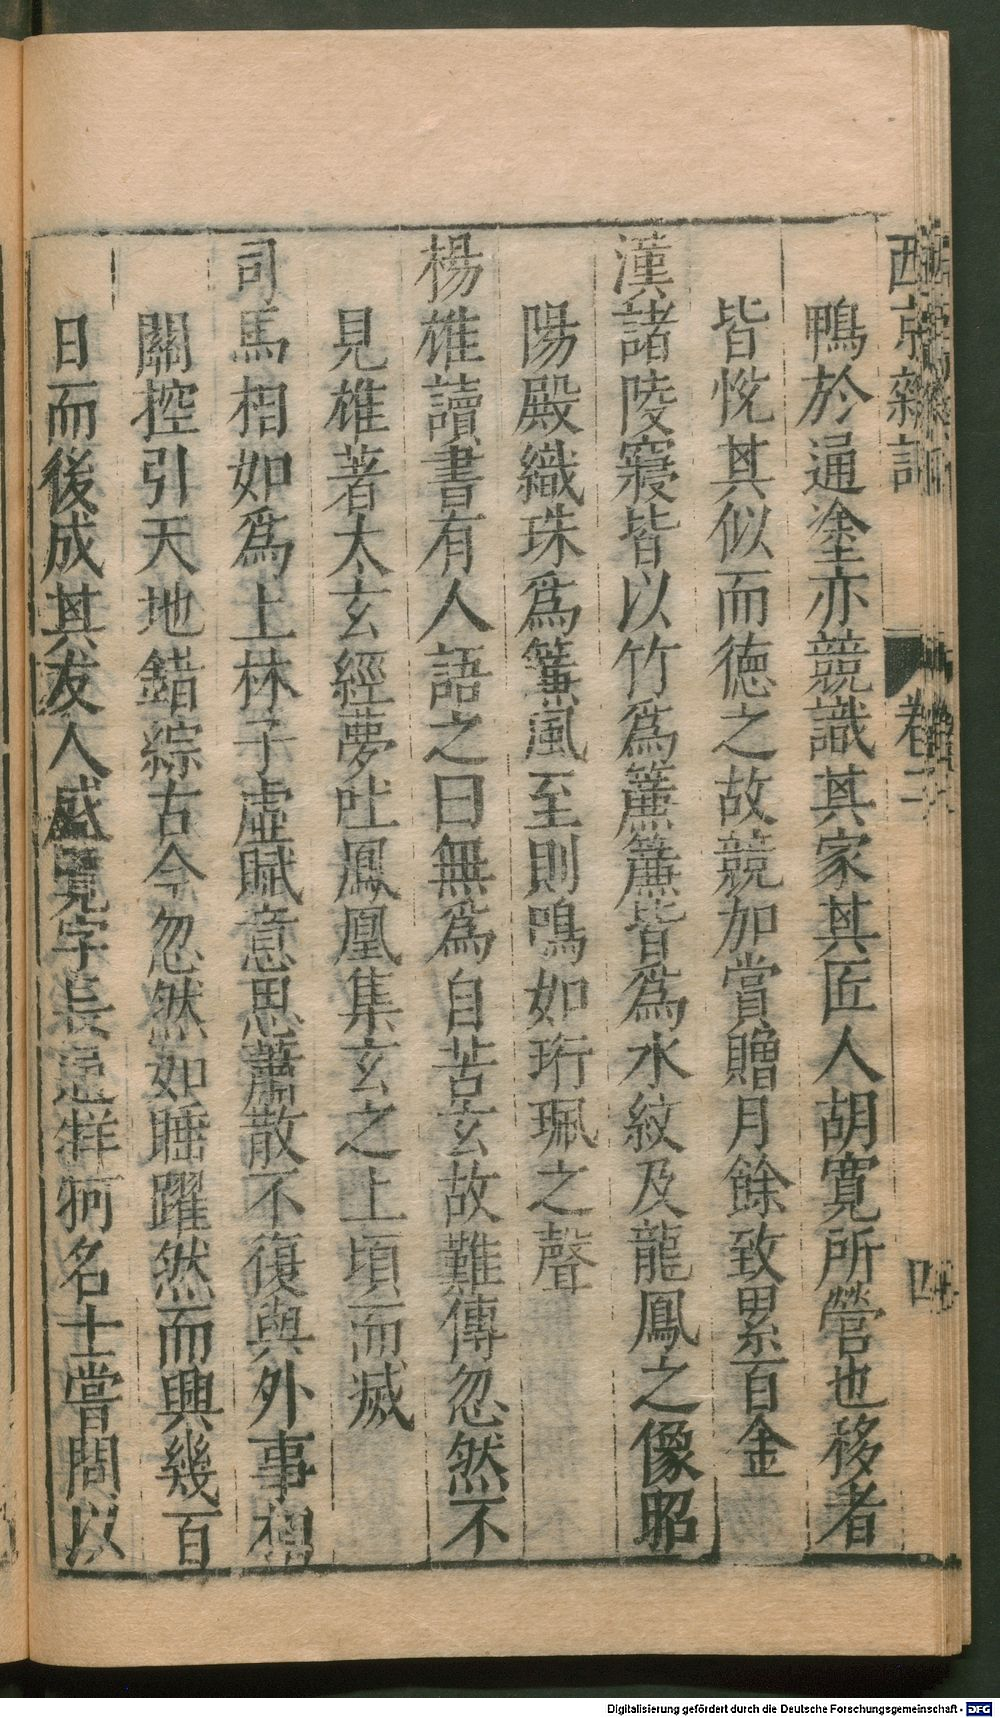 西京雜記
卷二
四
鴨於通塗亦競識其家其匠人胡寬所營也移者
皆恱其似而德之故競加賞贈月餘致累百金
漢諸陵寢皆以竹爲簾簾皆爲水紋及龍鳳之像昭
陽殿織珠爲簾風至則鳴如珩珮之聲
楊雄讀書有人語之曰無爲自苦玄故難傳忽然不
見雄著太玄經夢吐鳳凰集玄之上頃而滅
司馬相如爲上林子虛賦意思蕭散不復與外事相
關控引天地錯綜古今忽然如睡躍然而興幾百
日而後成其友人盛覧字長通牂牁名士嘗問以
Digitalisierung gefördert durch die Deutsche Forschungsgemeinschaft - DFG